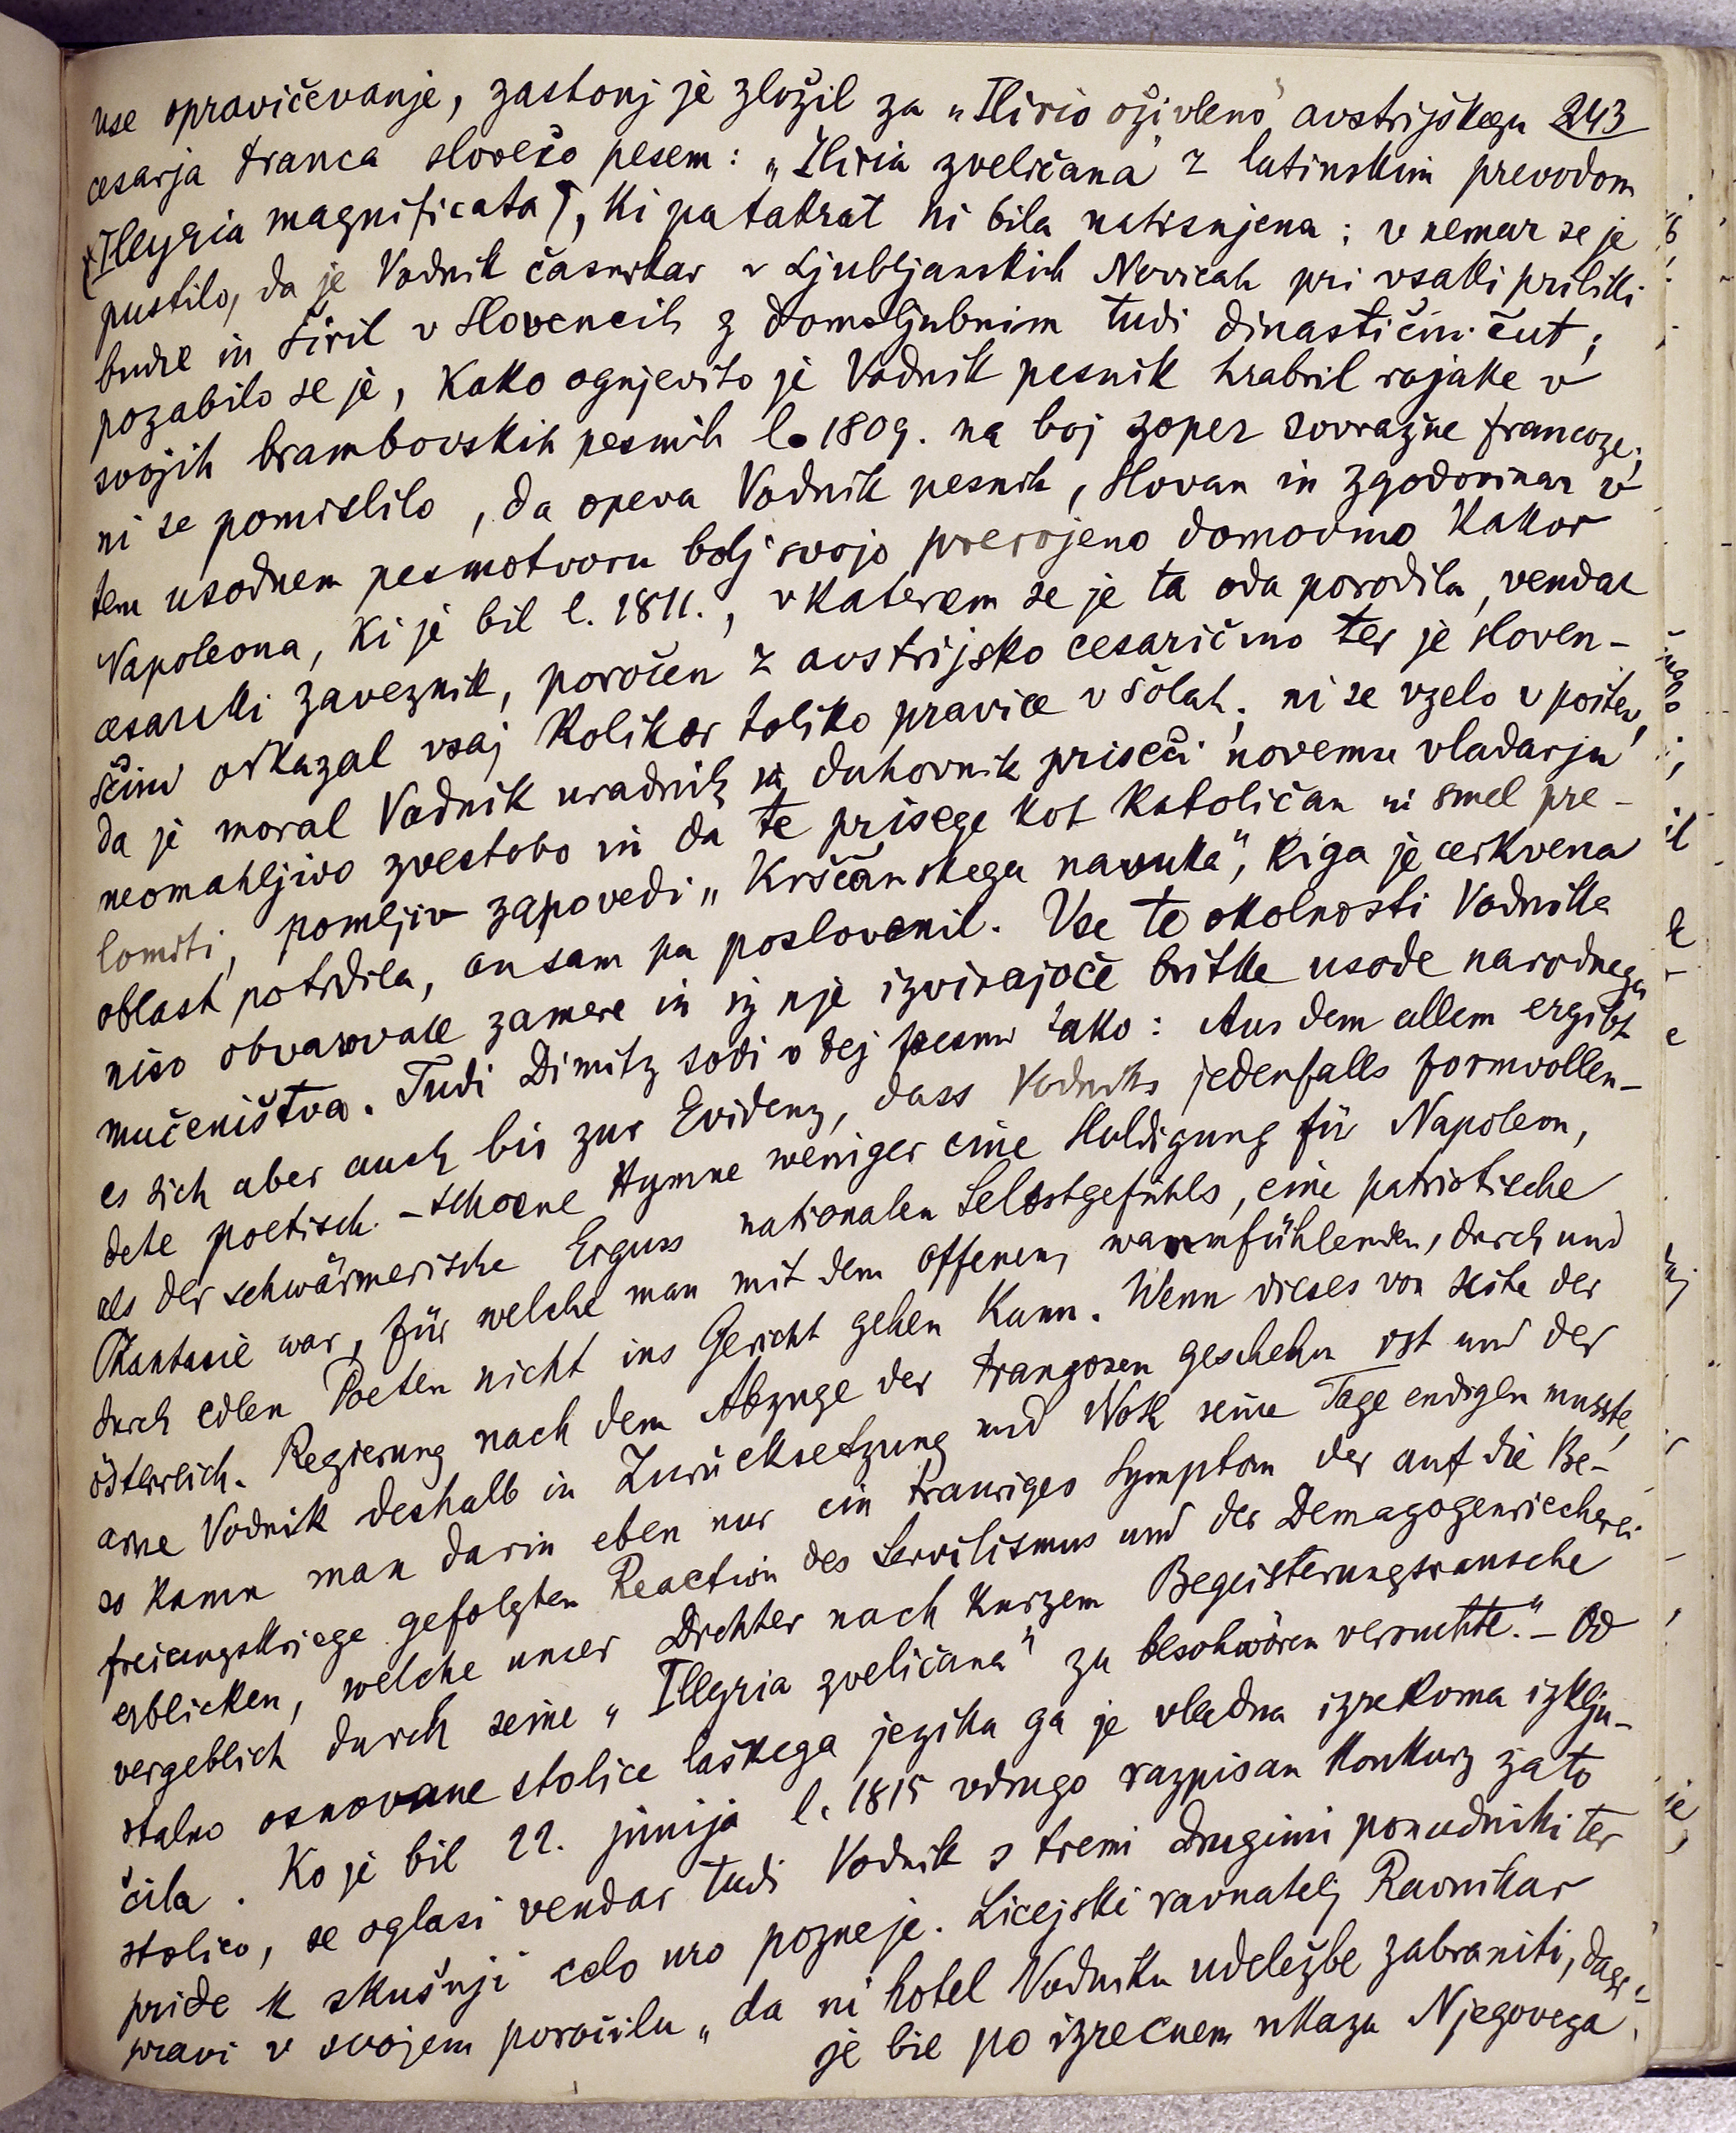 vse opravičevanje, zastonj je zložil za „Ilirio oživleno" avstrijskega 243
cesarja Franca slovečo pesem: „Iliria zveličana" z latinskim prevodom
(Illyria magnificata), ki pa takrat ni bila natisnjena; v nemar se je
pustilo, da je Vodnik časnikar v Ljubljanskih Novicah pri vsaki priliki
budil in širil v Slovencih z domoljubnim tudi dinastični čut;
pozabilo se je, kako ognjevito je Vodnik pesnik hrabril rojake v
svojih brambovskih pesmih l. 1809. na boj zoper sovražne francoze;
ni se pomislilo, da opeva Vodnik pesnik, Slovan in zgodovinar v
tem usodnem pesmotvoru bolj svojo prerojeno domovino kakor
Napoleona, ki je bil l. 1811., v katerem se je ta oda porodila, vendar
cesarski zaveznik, poročen z avstrijsko cesaričino ter je sloven-
ščini odkazal vsaj kolikor toliko pravice v šolah; ni se vzelo v poštev,
da je moral Vodnik uradnik in duhovnik priseči novemu vladarju
neomahljivo zvestobo in da te prisege kot katoličan ni smel pre-
lomiti, pomljiv zapovedi „Krščanskega navuka", ki ga je cerkvena
oblast potrdila, on sam pa poslovenil. Vse te okolnosti Vodnika
niso obvarovale zamere in iz nje izvirajoče britke usode narodnega
mučeništva. Tudi Dimitz sodi o tej pesmi tako: Aus dem allem ergibt
es sich aber auch bis zur Evidenz, dass Vodniks jedenfalls formvollen-
dete poetisch-schoene Hymne weniger eine Huldigung für Napoleon,
als der schwärmerische Erguss nationalen Selbstgefühls, eine patriotische
Phantasie war, für welche man mit dem offenen, warmfühlenden, durch und
durch edlen Poeten nicht ins Gericht gehen kann. Wenn dieses von Seite der
österreich. Regierung nach dem Abzuge der Franzosen geschehn ist und der
arme Vodnik deshalb in Zurücksetzung und Noth seine Tage endigen musste,
so kann man darin eben nur ein trauriges Symptom der auf die Be-
freiungskriege gefolgten Reaction des Servilismus und der Demagogenriecherei
erblicken, welche unser Dichter nach kurzem Begeisterungsrausche
vergeblich durch seine „Illyria zveličana" zu beschwören versuchte." – Od
stalno osnovane stolice laškega jezika ga je vladna izrekoma izklju-
čila. Ko je bil 22. junija l. 1815 vdrugo razpisan konkurz za to
stolico, se oglasi vendar tudi Vodnik s tremi drugimi ponudniki ter
pride k skušnji celo uro pozneje. Licejski ravnatelj Ravnikar
pravi v svojem poročilu „da ni hotel Vodniku udeležbe zabraniti, dasi
je bil po izrecnem ukazu Njegovega